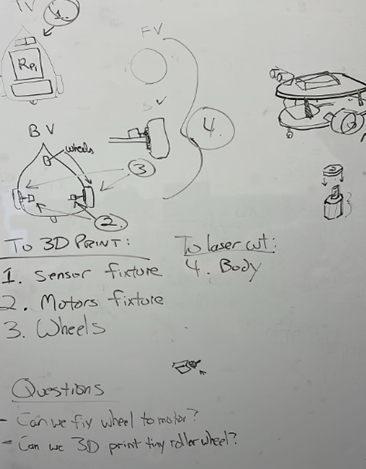 TV
1.
RPi
FV
SV
4.
BV
wheels
3
2.
To 3D PRINT:
1. Sensor fixture
2. Motors fixture
3. Wheels
To laser cut:
4. Body
Questions
- Can we fix wheel to motor?
- Can we 3D print tiny roller wheel?